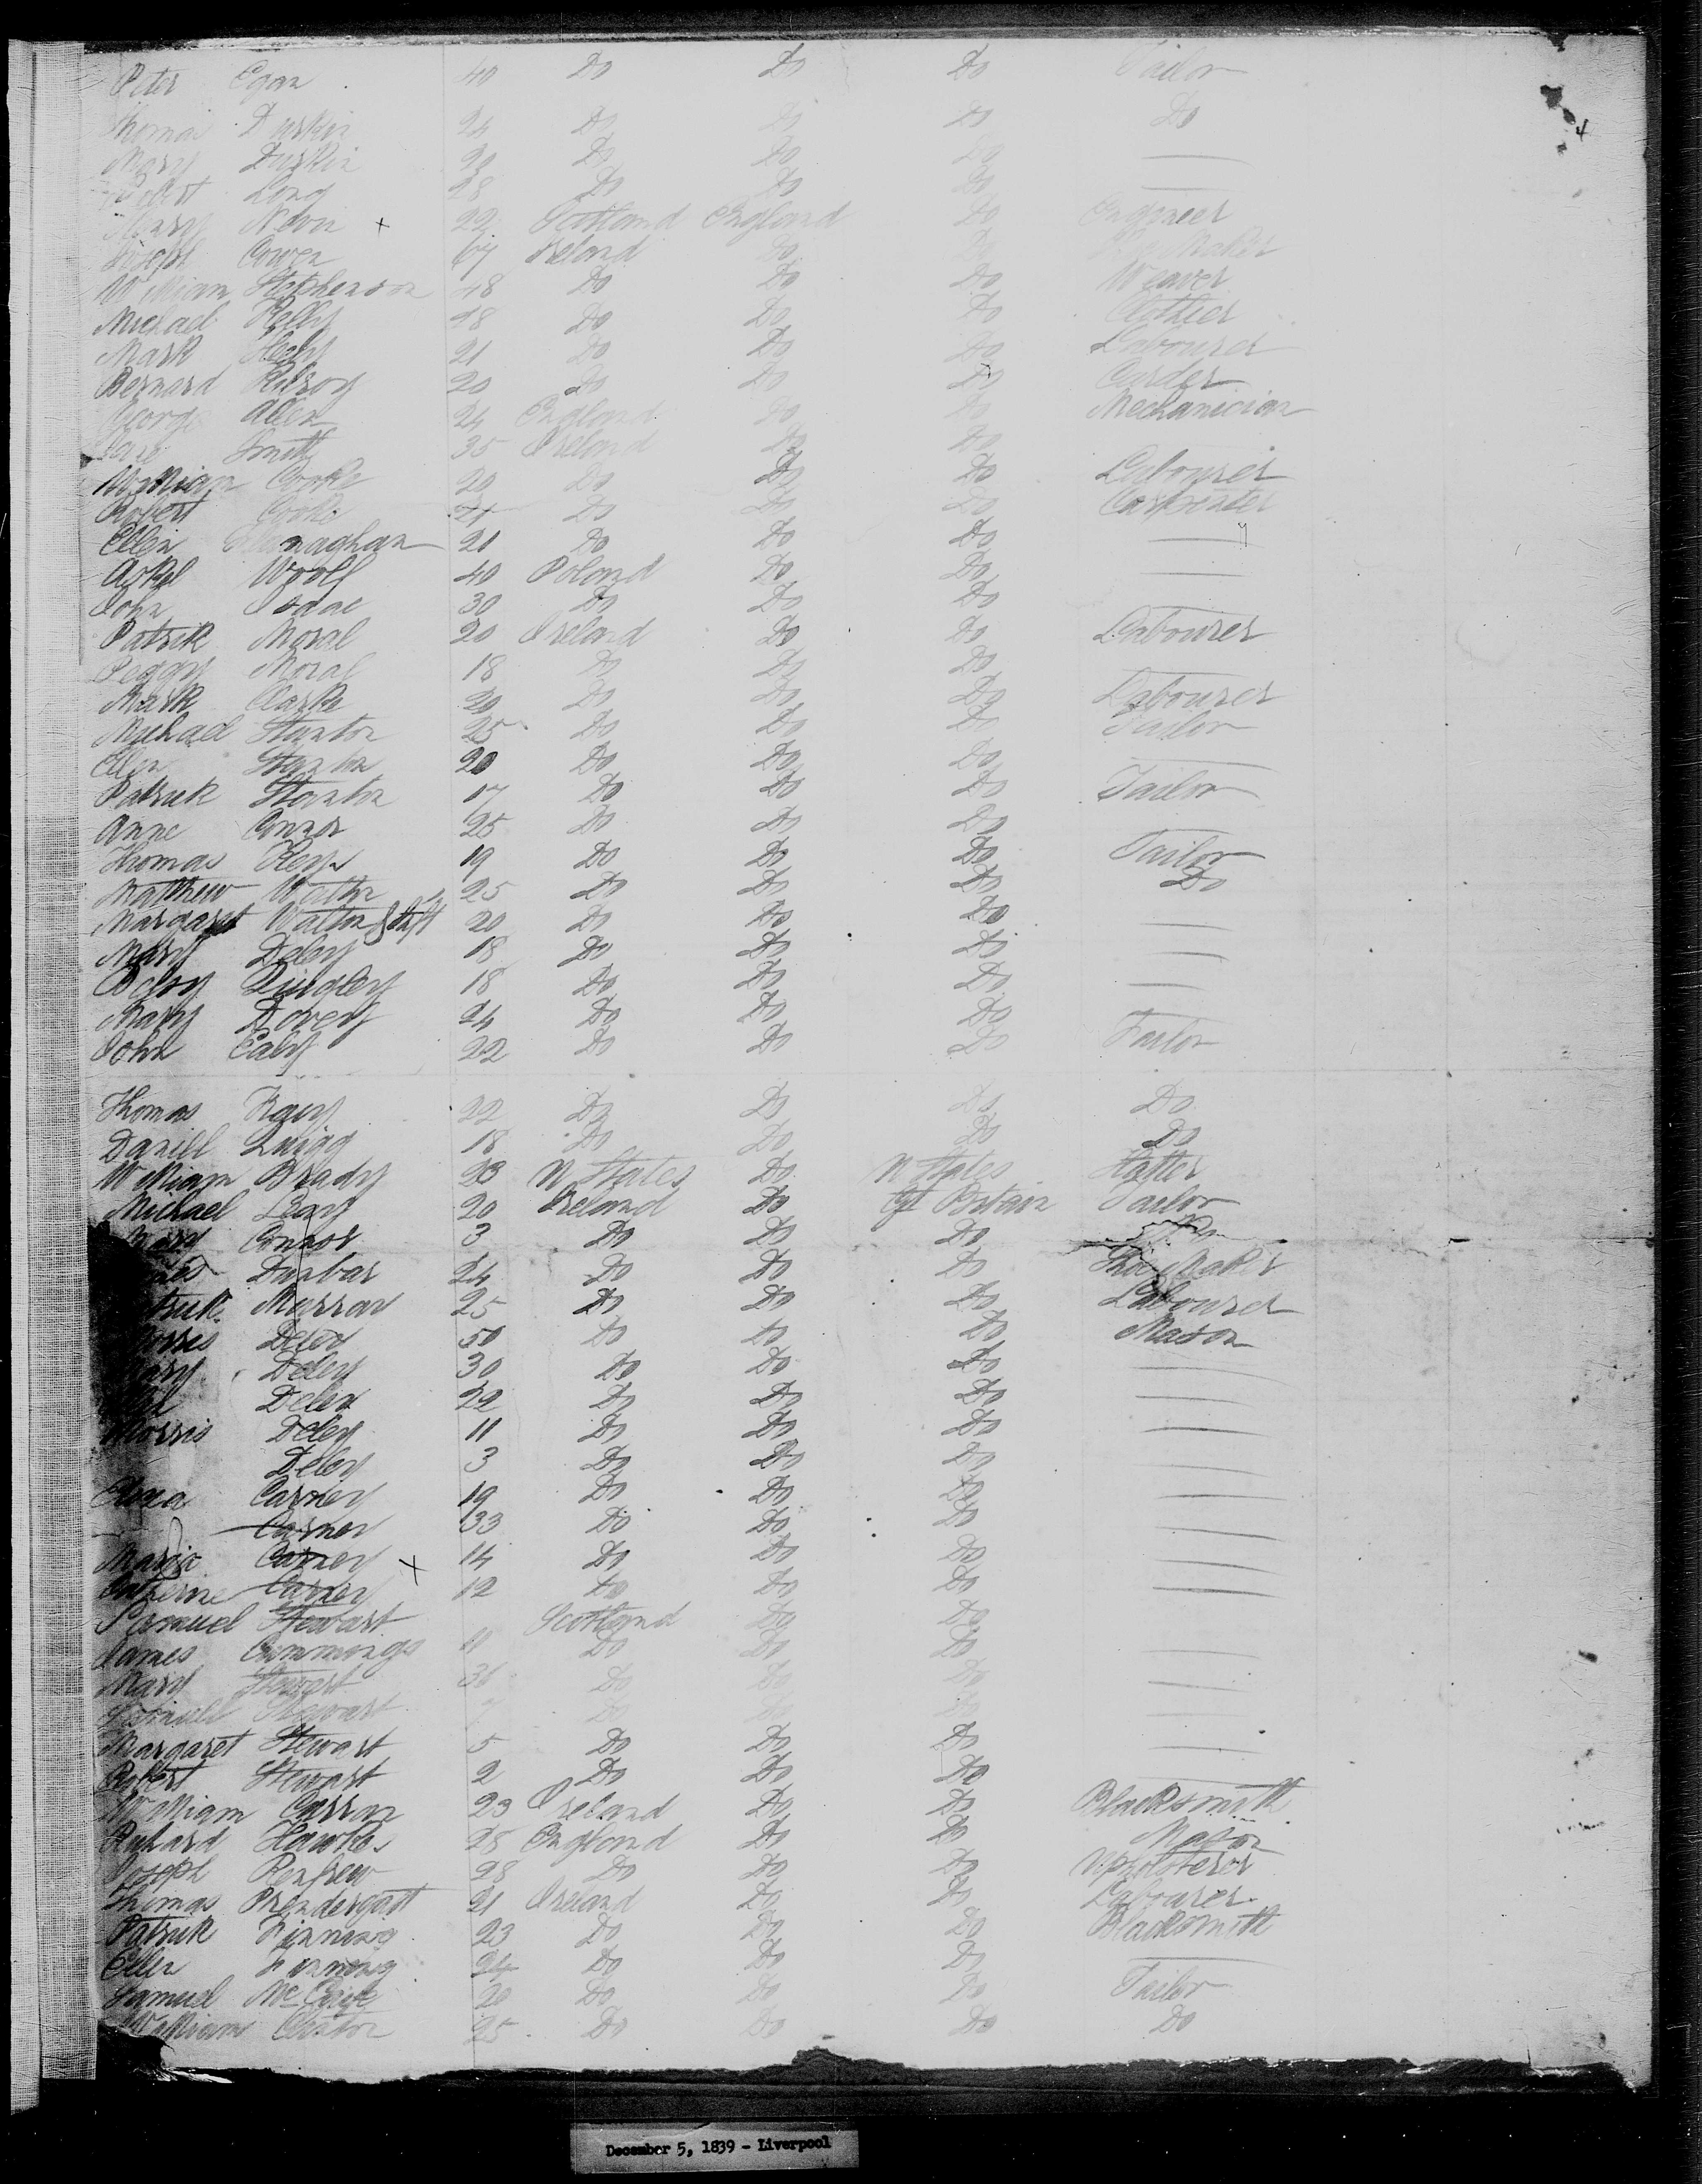 Peter Egan 40 Do Do Do Tailor
4
Thomas Durkin 24 Do Do Do Do
Mary Durkin 20 Do Do Do —
Robert Long 28 Do Do Do —
Henry Nevin x 22 Scotland England Do Engineer
Joseph Cowen 67 Ireland Do Do Maker
William Stephenson 48 Do Do Do Weaver
Michael Kelly 18 Do Do Do Clothier
Mark 21 Do Do Do Labourer
Bernard Kilroy 20 Do Do Do Carder
George Allen 24 England Do Do Mechanician
Smith 35 Ireland Do Do
William Cooke 20 Do Do Do Labourer
Robert Cooke 21 Do Do Do Carpenter
Ellen 21 Do Do Do —
Woolf 40 Poland Do Do —
John Isaac 30 Do Do Do —
Patrik Moral 20 Ireland Do Do Labourer
Peggy Moral 18 Do Do Do —
Mark Clarke 20 Do Do Do Labourer
Michael Stanton 25 Do Do Do Tailor
Ellen Stanton 20 Do Do Do —
Patrick Stanton 17 Do Do Do Tailor
Anne Connor 25 Do Do Do —
Thomas Keys 19 Do Do Do Tailor
Matthew Walton 25 Do Do Do Do
Margaret Walton & Inft 20 Do Do Do —
Mary Daley 18 Do Do Do —
Betsy Dindley 18 Do Do Do —
Mary Dovey 24 Do Do Do —
John Caly 22 Do Do Do Tailor
Thomas 22 Do Do Do Do
Daniell Quigg 18 Do Do Do Do
William Brady 23 U States Do U States Hatter
Michael Leary 20 Ireland Do Gt Britain Tailor
Mary Connor 3 Do Do Do Do
Dunbar 24 Do Do Do Shoe Maker
Patrick Murray 25 Do Do Do Labourer
Morris Deley 50 Do Do Do Mason
Mary Deley 30 Do Do Do —
Deley 22 Do Do Do —
Morris Deley 11 Do Do Do —
Deley 3 Do Do Do —
Carney 19 Do Do Do —
Carney 33 Do Do Do —
Maria Carney x 14 Do Do Do —
Catherine Carney 12 Do Do Do —
Samuel Stewart Scotland Do Do
James Cummings 11 Do Do Do —
Mary Stewart 36 Do Do Do —
Stewart 7 Do Do Do —
Margaret Stewart 5 Do Do Do —
Robert Stewart 2 Do Do Do —
William Curran 23 Ireland Do Do Blacksmith
Richard Hawkes 28 England Do Do Mason
Joseph Renfrew 28 Do Do Do Upholsterer
Thomas Prendergast 21 Ireland Do Do Labourer
Patrick Finning 23 Do Do Do Blacksmith
Ellen Finning 24 Do Do Do —
Samuel 20 Do Do Do Tailor
William 25 Do Do Do Do
December 5, 1839 - Liverpool